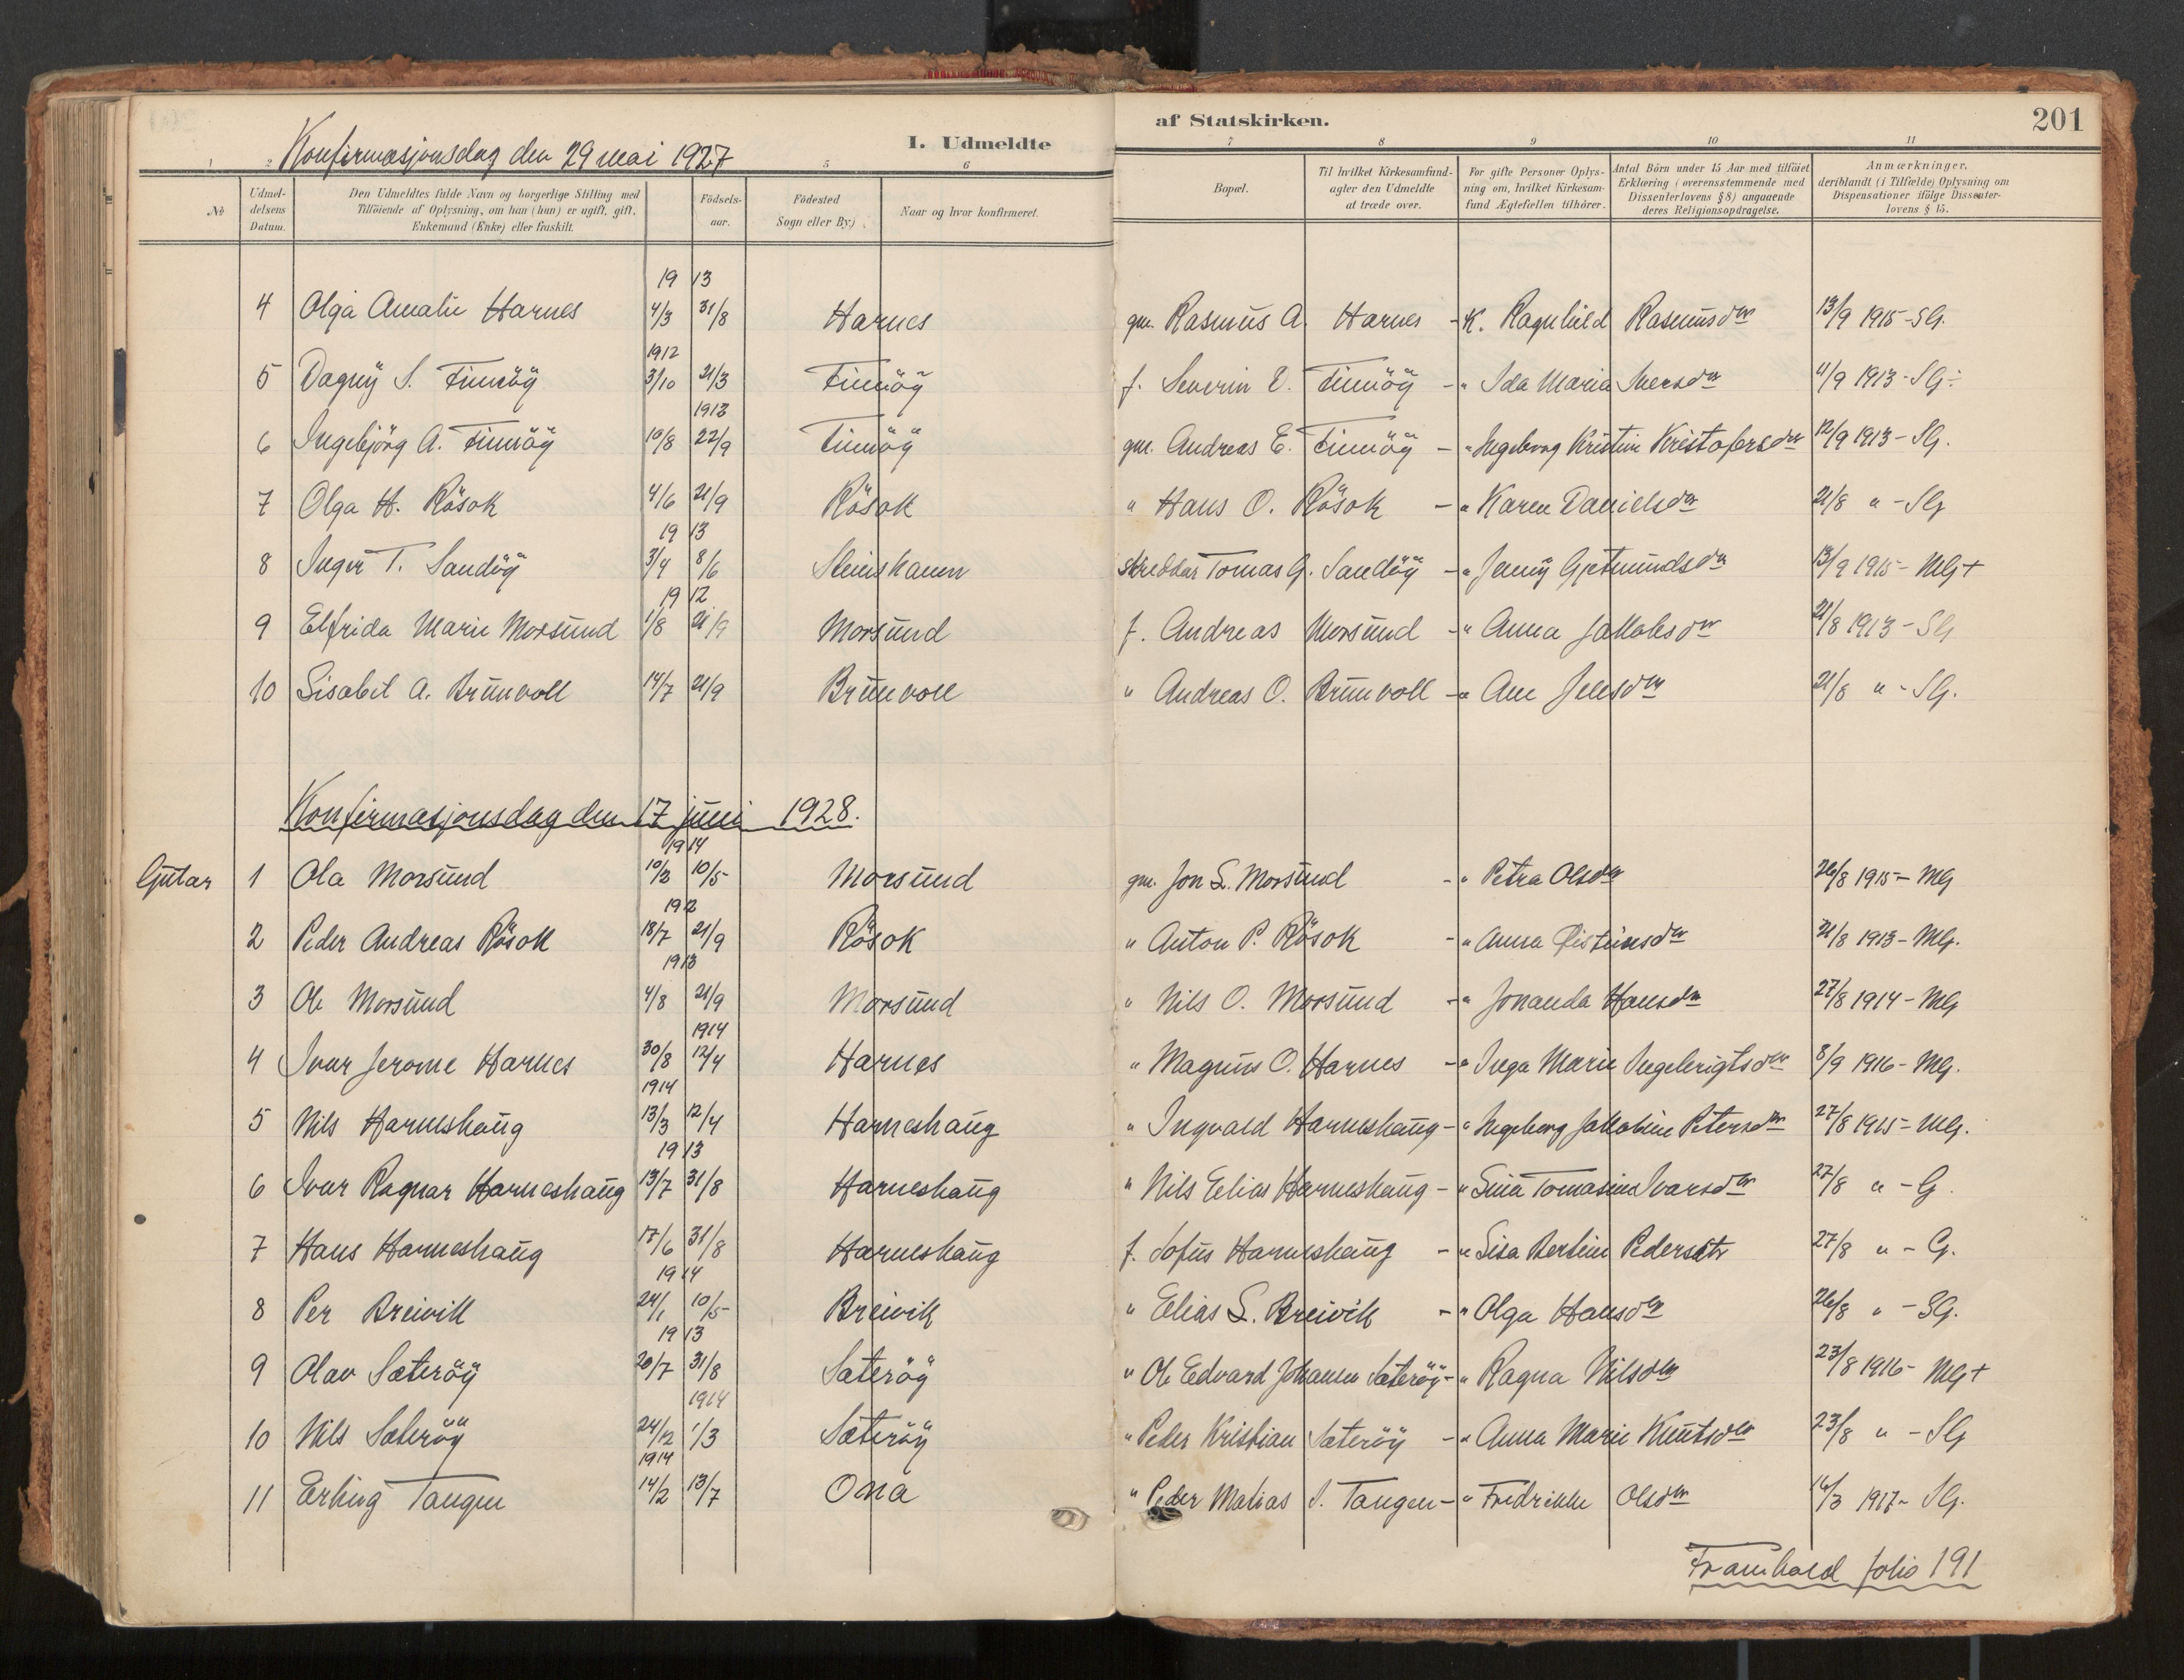 Konfirmasjonsdag den 29 mai 1927
I. Udmeldte
af Statskirken.
201
1 2 5 6 7 8 9 10 11
№ Udmeldelsens Datum. Den Udmeldtes fulde Navn og borgerlige Stilling med Tilföiende af Oplysning, om han (hun) er ugift, gift, Enkemand (Enke) eller fraskilt. Födselsaar. Födested Sogn eller By) Naar og hvor konfirmeret. Bopæl. Til hvilket Kirkesamfund agter den Udmeldte at træde over. For gifte Personer Oplysning om, hvilket Kirkesamfund Ægtefællen tilhörer. Antal Börn under 15 Aar med tilföiet Erklæring (overensstemmende med Dissenterlovens § 8) angaaende deres Religionsopdragelse. Anmærkninger, deriblandt (i Tilfælde) Oplysning om Dispensationer ifölge Dissenterlovens § 15.
1913
4 Olga Amalie Harnes 4/3 31/8 Harnes gm. Rasmus A. Harnes - K. Ragnhild Rasmusdtr 13/9 1915 - SG.
1912
5 Dagny S. Finnöy 3/10 21/3 Finnöy f. Severin E. Finnöy - " Ida Maria Iversdtr 11/9 1913 - SG.
1913
6 Ingebjörg A. Finnöy 10/8 22/9 Finnöy gm. Andreas E. Finnöy - " Ingeborg Kristine Kristofersdtr 12/9 1913 - SG.
7 Olga H. Rösok 4/6 21/9 Rösok " Hans O. Rösok - " Karen Danielsdtr 21/8 " - SG
1913
8 Inger T. Sandöy 3/4 8/6 Steinshamn skreddar Tomas G. Sandöy - " Jenny Gjetmundsdtr 13/9 1915 - MG +
1912
9 Elfrida Marie Morsund 1/8 21/9 Morsund f. Andreas Morsund - " Anna Jakobsdtr 21/8 1913 - SG
10 Lisabet A. Brunvoll 14/7 21/9 Brunvoll " Andreas O. Brunvoll - " Ane Jensdtr 21/8 " - SG.
Konfirmasjonsdag den 17 juni 1928.
1914
Gutar 1 Ola Morsund 10/2 10/5 Morsund gm. Jon L. Morsund - " Petra Olsdtr 26/8 1915 - MG
1912
2 Peder Andreas Rösok 18/7 21/9 Rösok " Anton P. Rösok - " Anna Eistinsdtr 21/8 1913 - MG.
1913
3 Ole Morsund 4/8 21/9 Morsund " Nils O. Morsund - " Jonanda Hansdtr 27/8 1914 - MG
1914
4 Ivar Jerome Harnes 30/8 12/4 Harnes " Magnus O. Harnes - " Inga Marie Ingebrigtsdtr 8/9 1916 - MG.
1914
5 Nils Harneshaug 13/3 12/4 Harneshaug " Ingvald Harneshaug - " Ingeborg Jakobine Petersdtr 27/8 1915 - MG.
1913
6 Ivar Ragnar Harneshaug 13/7 31/8 Harneshaug " Nils Elias Harneshaug - " Sina Tomasine Ivarsdtr 27/8 " - G.
7 Hans Harneshaug 17/6 31/8 Harneshaug f. Sofus Harneshaug - " Lisa Bertine Pedersdtr 27/8 " - G.
1914
8 Per Breivik 24/1 10/5 Breivik " Elias L. Breivik - " Olga Hansdtr 26/8 " - SG.
1913
9 Olav Sæteröy 20/7 31/8 Sæteröy " Ole Edvard Johansen Sæteröy - " Ragna Nilsdtr 23/8 1916 - MG +
1914
10 Nils Sæteröy 24/12 1/3 Sæteröy " Peder Kristian Sæteröy - " Anna Marie Knutsdtr 23/8 " - SG
1914
11 Erling Tangen 14/2 13/7 Ona " Peder Matias S. Tangen - " Fredrikke Olsdtr 16/3 1917 - SG.
Framhald folio 191